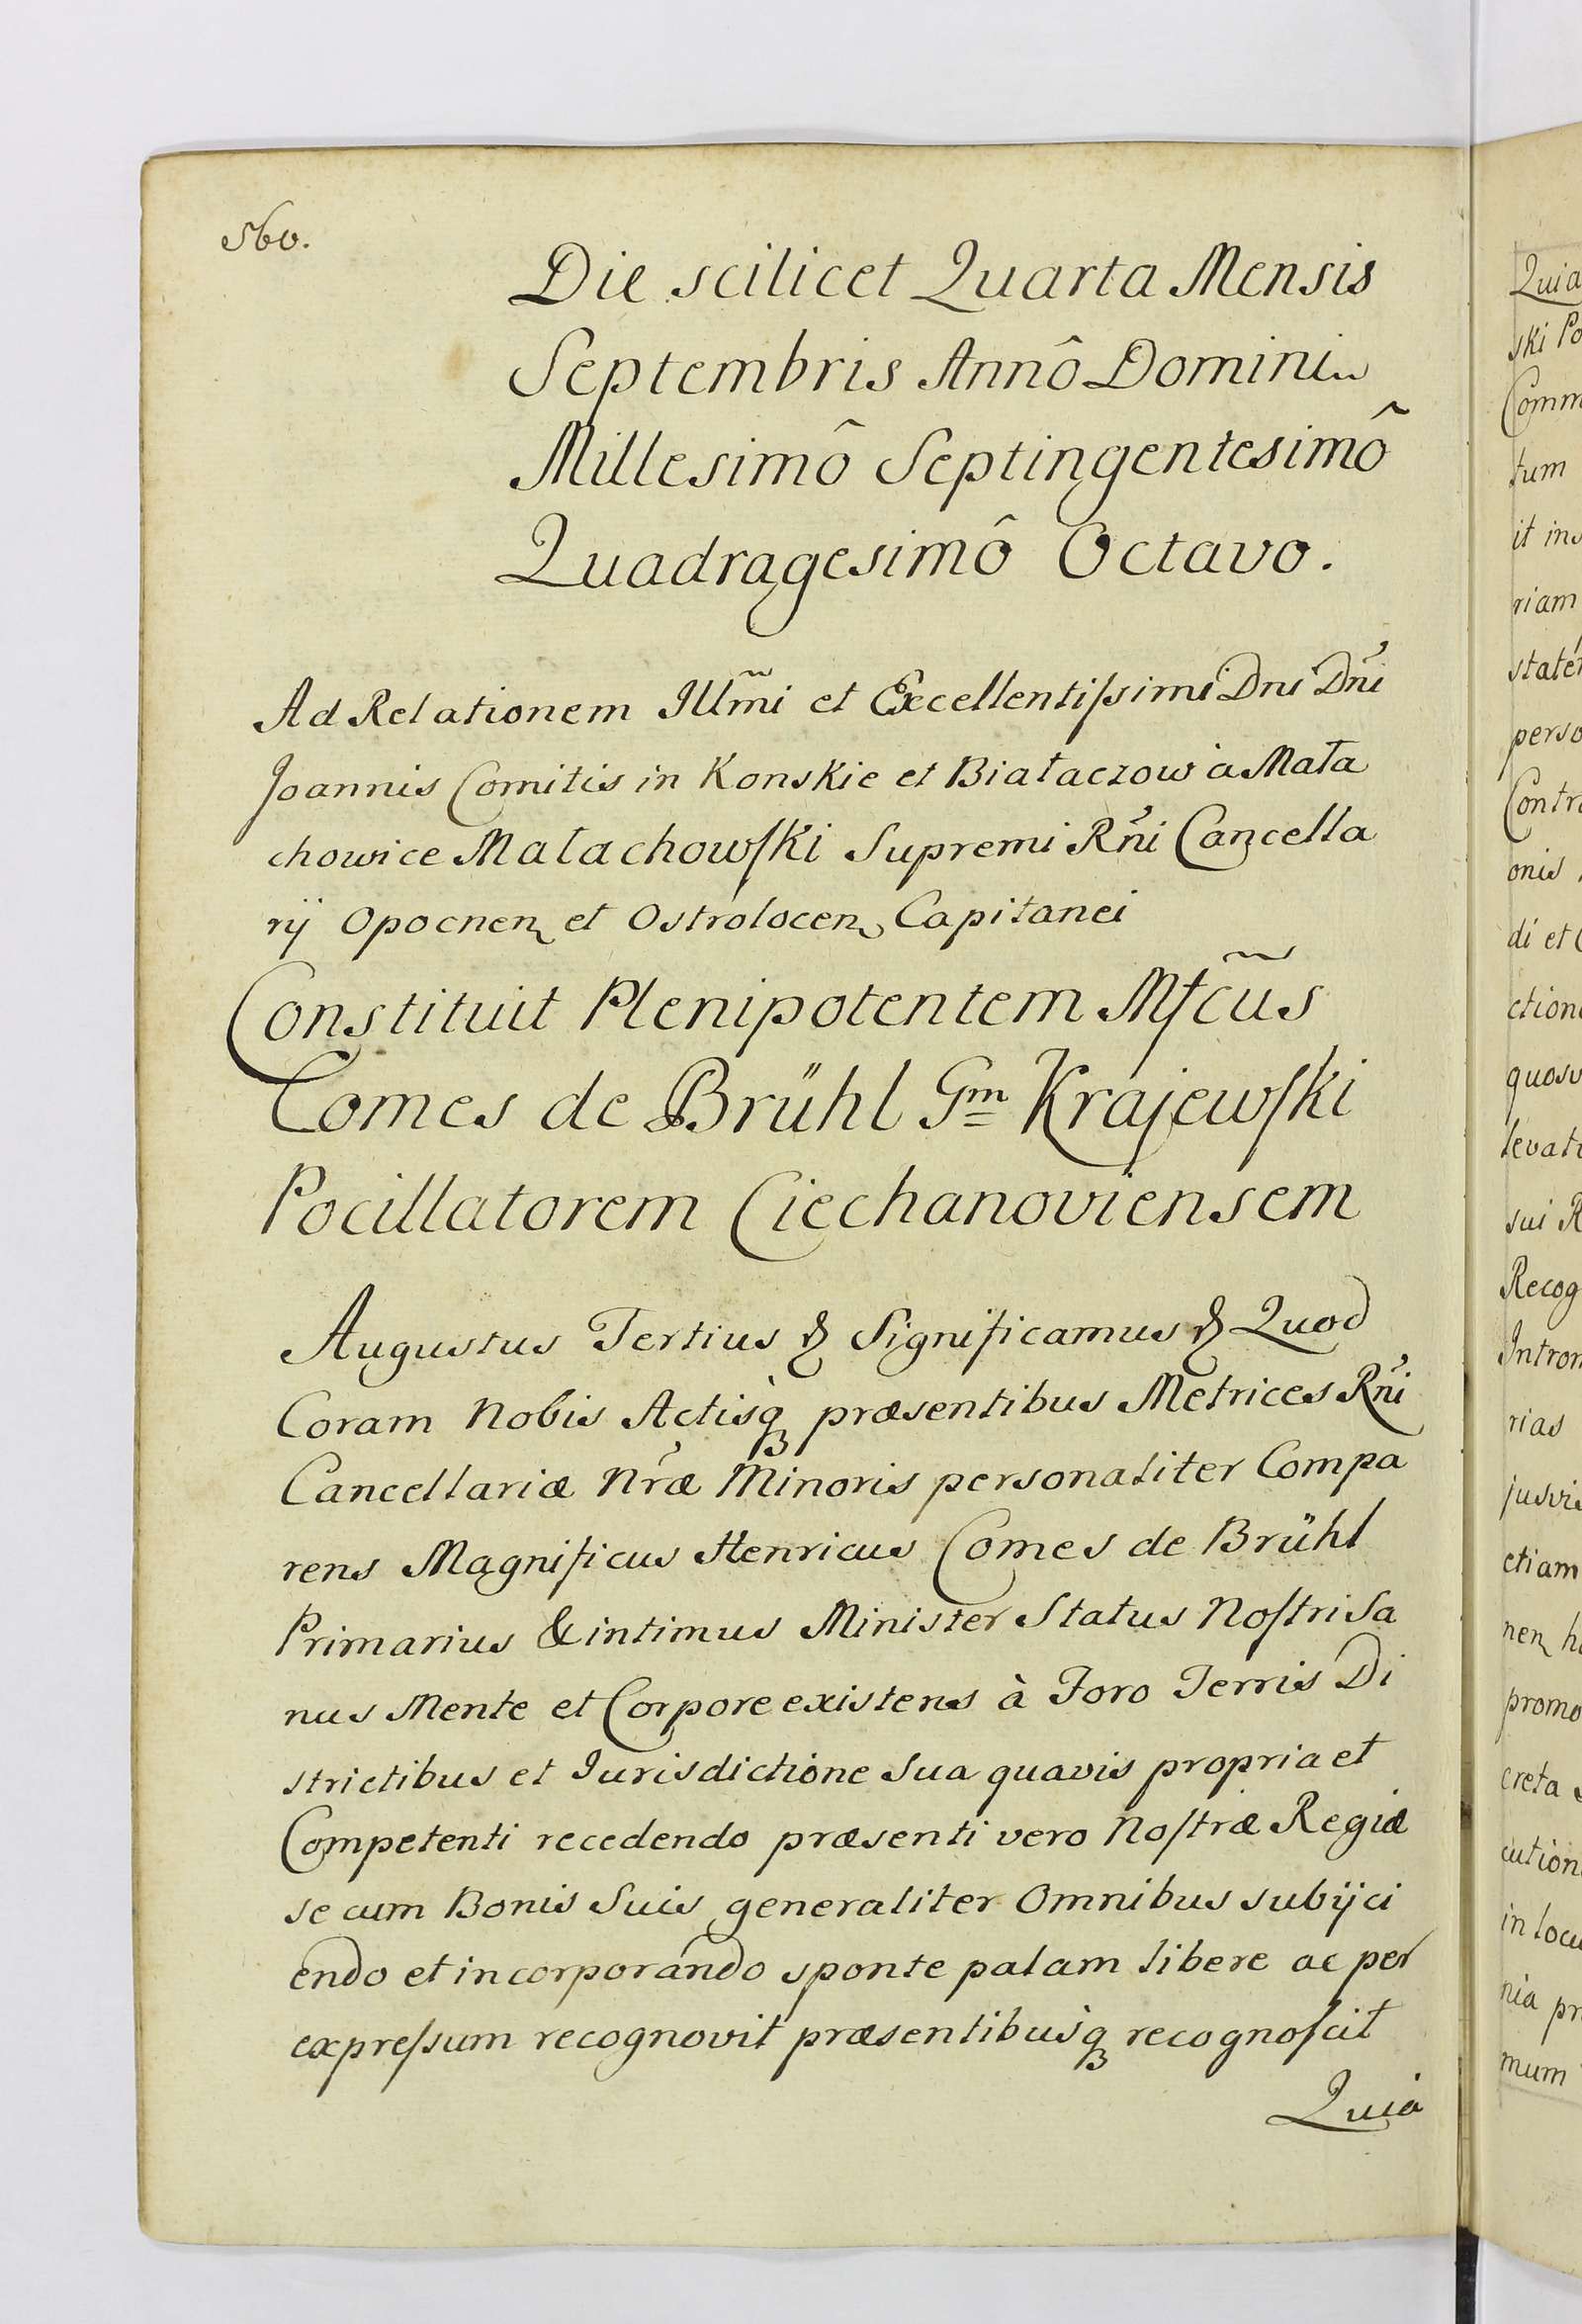 560.
Die scilicet Quarta Mensis
Septembris Annô Domini
Millesimô Septingentesimô
Quadragesimô Octavo.
Ad Relationem Illm̃i et Excellentiſsimi Dni Dñi
Joannis Comitis in Konskie et Białaczow à Mała
chowice Małachowſki Supremi Rñi Cancella
rÿ Opocnen et Ostrolocen Capitanei
Constituit Plenipotentem Mſc̃us
Comes de Brühl Gm Krajewſki
Pocillatorem Ciechanoviensem
Augustus Tertius & Significamus & Quod
Coram Nobis Actisq̀ præsentibus Metrices Rñi
Cancellariæ Nr̃æ Minoris personaliter Compa
rens Magnificus Henricus Comes de Brühl
Primarius & intimus Minister Status Noſtri Sa
nus Mente et Corpore existens à Foro Terris Di
strictibus et Jurisdictione Sua quavis propria et
Competenti recedendo præsenti vero Noſtræ Regiæ
se cum Bonis Suis generaliter Omnibus subÿci
endo et incorporando sponte palam libere ac per
expreſsum recognovit præsentibusq̀ recognoſcit
Quia
Quia
ski Po
Comm
tum
it ins
riam
statér
perso
Contra
onis
di et C
ction
quosv
levati
sui R
Recog
Intron
rias
jusvis
etiam
nen ha
promo
creta
cution
in locu
nia pr
mum